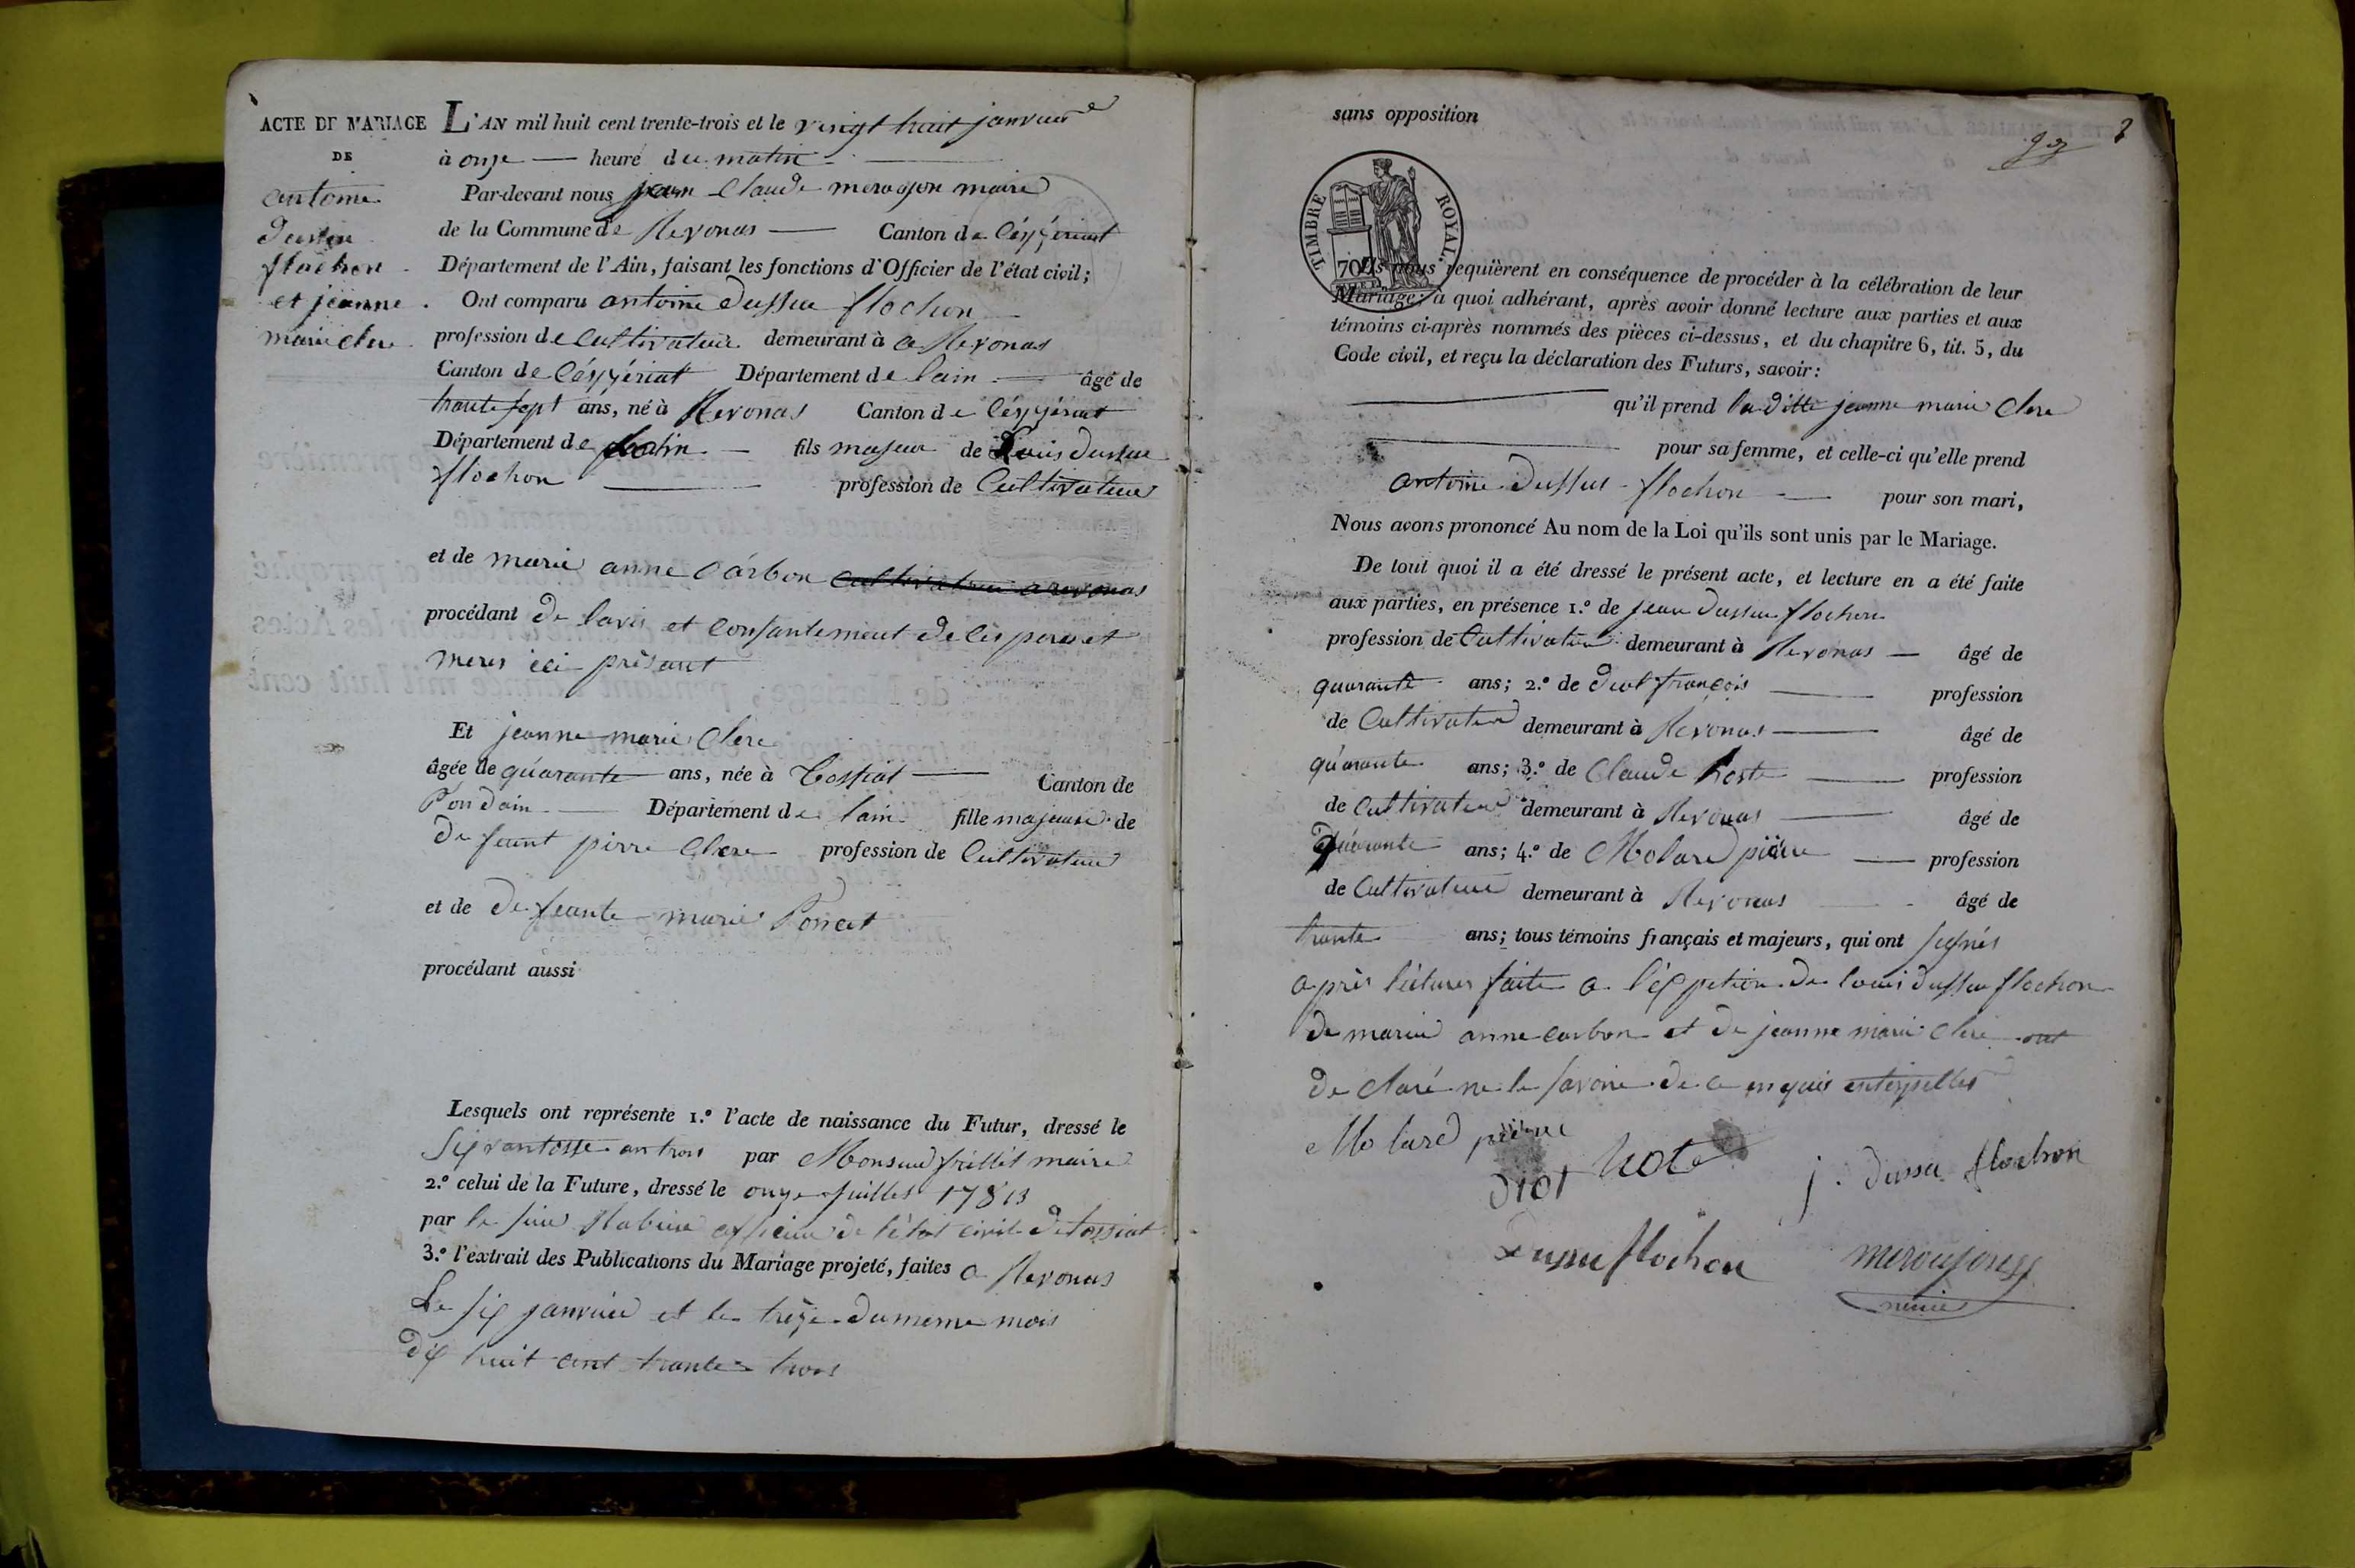 ACTE DE MARIAGE
DE
antoine
dussur
flochon
et jeanne
marie clere
L'AN mil huit cent trente-trois et le vingt huit janvier
à onze heure du matin
Par-devant nous jean Claude maire
de la Commune de Revonas Canton de Céyzériat
Département de l'Ain, faisant les fonctions d'Officier de l'état civil;
Ont comparu antoine Dussur flochon
profession de Cultivateur demeurant à a Revonas
Canton de Céyzériat Département de lain âgé de
trante sept ans, né à Revonas Canton de Céyzériat
Département de lain fils majeur de Louis dussur
flochon profession de Cultivateur
et de marie anne Carbon cultivateur a revonas
procédant de lavis et consantement de ces peres et
meres ici présant
Et jeanne marie Clere
âgée de quarante ans, née à Tossiat Canton de
Pondain Département de lain fille majeure de
de feant pierre Clere profession de Cultivateur
et de de feante marie Poncet
procédant aussi
Lesquels ont représente 1.º l'acte de naissance du Futur, dressé le
six vantosse an trois par Monsieur maire
2.º celui de la Future, dressé le onze juillet
par le officier de létat civil de tossiat
3.º l'extrait des Publications du Mariage projeté, faites a Revonas
Le six janvier et le treize du meme mois
dix huit cent trante trois
sans opposition
TIMBRE ROYAL
Ils nous requièrent en conséquence de procéder à la célébration de leur
Mariage; à quoi adhérant, après avoir donné lecture aux parties et aux
témoins ci-après nommés des pièces ci-dessus, et du chapitre 6, tit. 5, du
Code civil, et reçu la déclaration des Futurs, savoir:
qu'il prend la ditte jeanne marie Clere
pour sa femme, et celle-ci qu'elle prend
antoine Dussur flochon pour son mari,
Nous avons prononcé Au nom de la Loi qu'ils sont unis par le Mariage.
De tout quoi il a été dressé le présent acte, et lecture en a été faite
aux parties, en présence 1.º de jean dussur flochon
profession de Cultivateur demeurant à Revonas âgé de
quarante ans; 2.º de diot françois profession
de Cultivateur demeurant à Revonas âgé de
quarante ans; 3.º de Claude profession
de Cultivateur demeurant à Revonas âgé de
quarante ans; 4.º de Molard pierre profession
de Cultivateur demeurant à Revonas âgé de
trante ans; tous témoins français et majeurs, qui ont signés
après lecture faite a léxpetion de louis dussur flochon
de marie anne carbon et de jeanne marie clere ont
de claré ne le savoire de ce enquis enterpellés
Molard pierre
diot
j. dussu flochon
Dussu flochon